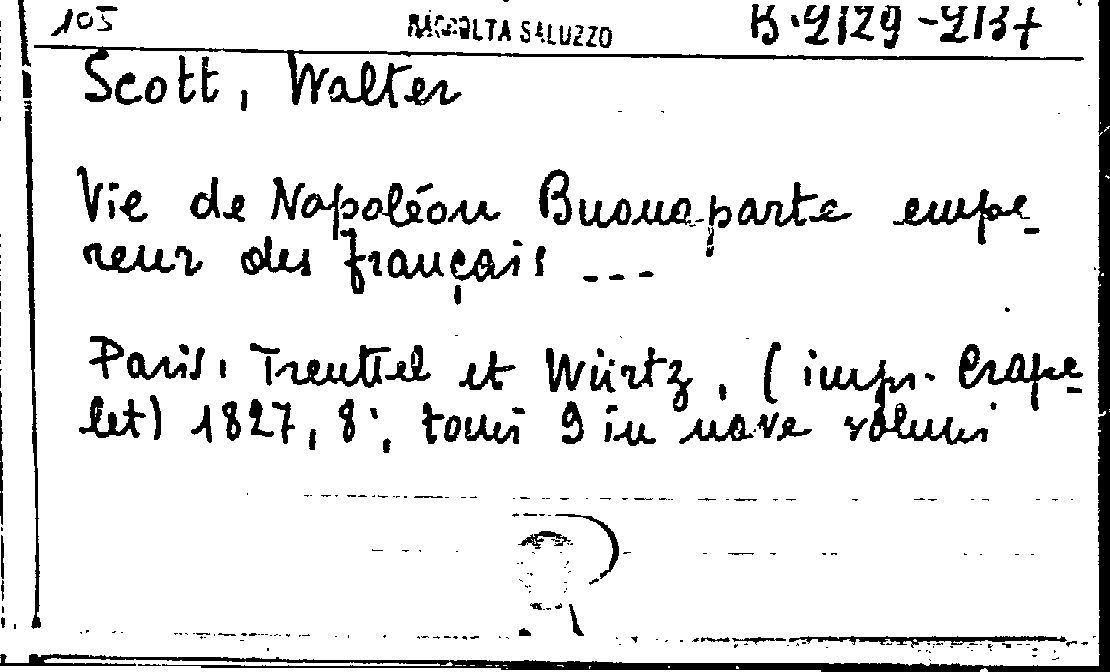 105 RACCOLTA SALUZZO B.2129-2137
Scott, Walter
Vie de Napoléon Buonaparte empe-
reur des français ---
Paris, Treuttel et Würtz, (impr. Crape-
let) 1827, 8°, tomi 9 in nove volumi